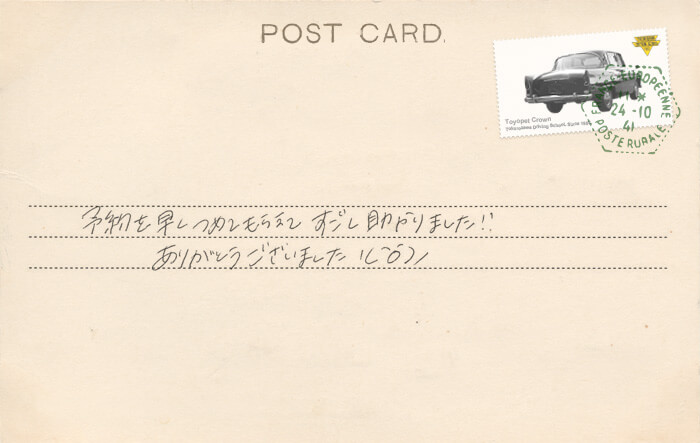 POST CARD.
Toyopet Crown
FRANCE EUROPÉENNE
24-10
41
POSTE RURALE
予約を早しつめてもらえて すごし助かりました!!
ありがとうございました !(^o^)ノ